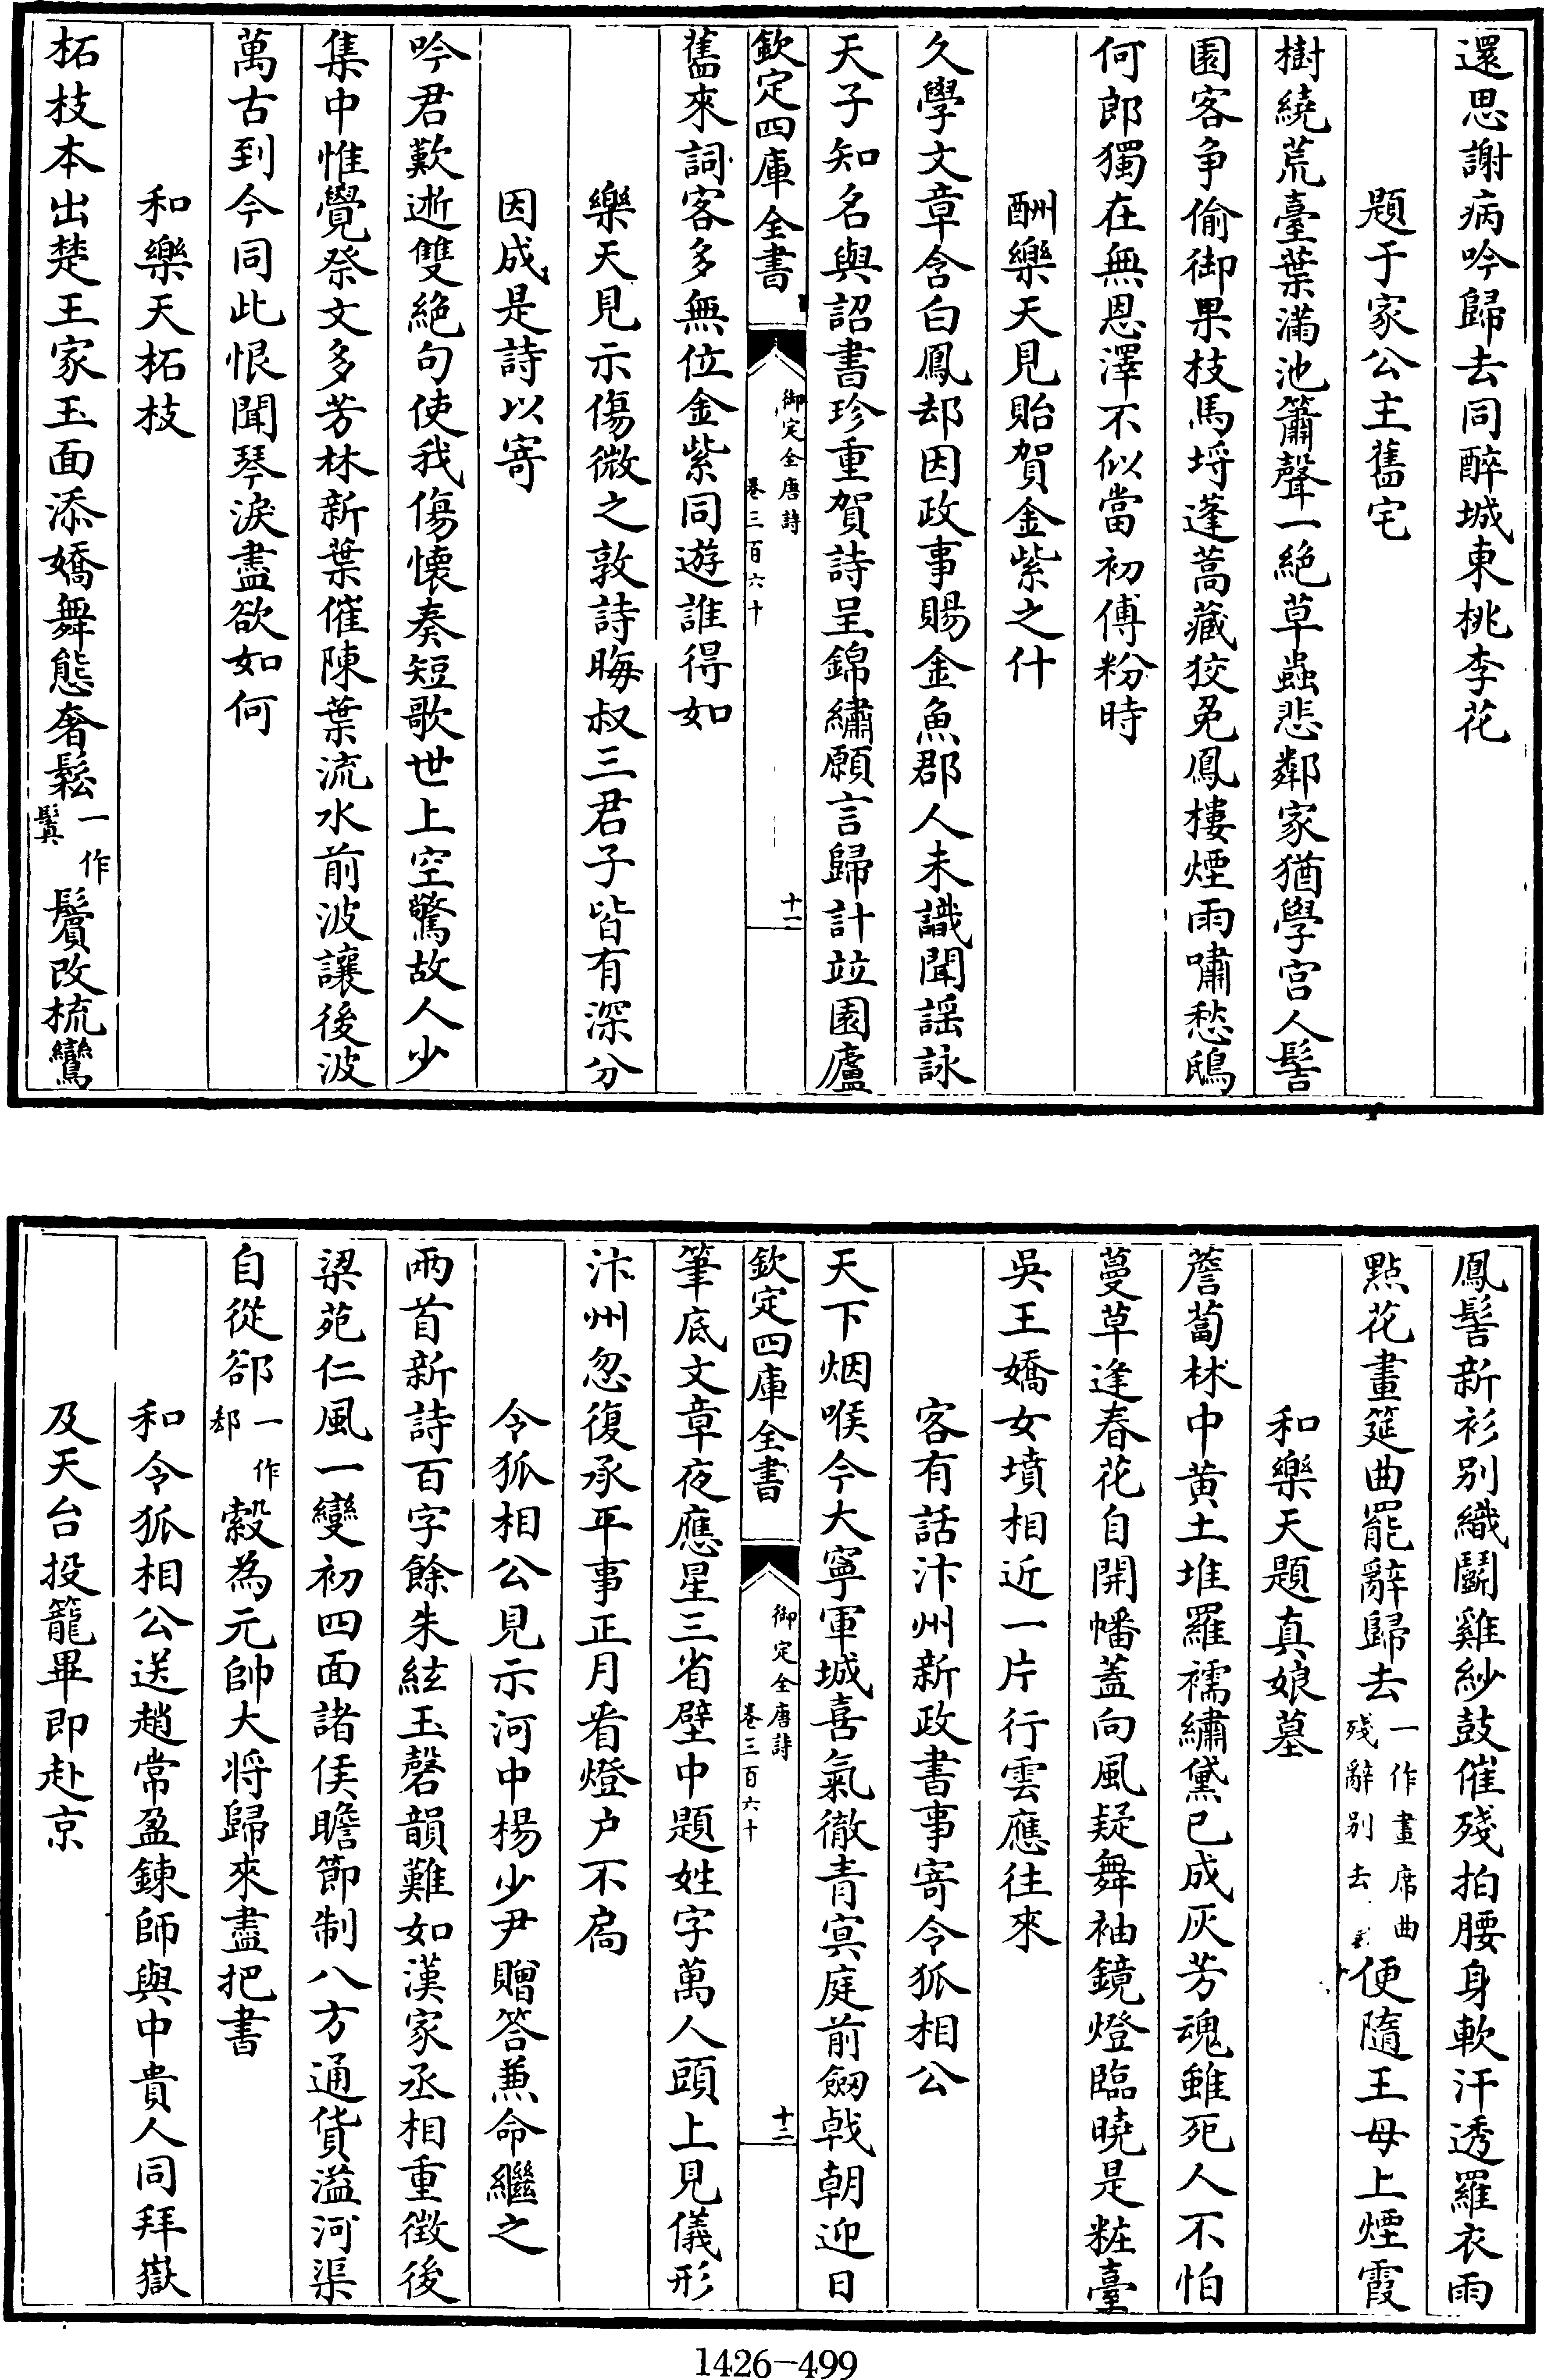 還思謝病吟歸去同醉城東桃李花
題于家公主舊宅
樹繞荒臺葉滿池簫聲一絶草蟲悲鄰家猶學宫人髻
園客争偷御果枝馬埒蓬蒿藏狡兔鳳樓煙雨嘯愁鴟
何郎獨在無恩澤不似當初傅粉時
酬樂天見貽賀金紫之什
久學文章含白鳳却因政事賜金魚郡人未識聞謡詠
天子知名與詔書珍重賀詩呈錦繡願言歸計竝園廬
欽定四庫全書
御定全唐詩
卷三百六十
十一
舊來詞客多無位金紫同遊誰得如
樂天見示傷微之敦詩晦叔三君子皆有深分
因成是詩以寄
吟君歎逝雙絶句使我傷懷奏短歌世上空驚故人少
集中惟覺祭文多芳林新葉催陳葉流水前波讓後波
萬古到今同此恨聞琴淚盡欲如何
和樂天柘枝
柘枝本出楚王家玉面添嬌舞態奢鬆一作鬒鬢改梳鸞
鳳髻新衫别織鬭雞紗鼓催殘拍腰身軟汗透羅衣雨
點花畫筵曲罷辭歸去一作畫席曲殘辭别去便隨王母上煙霞
和樂天題真娘墓
薝蔔林中黄土堆羅襦繡黛已成灰芳魂雖死人不怕
蔓草逢春花自開幡蓋向風疑舞袖鏡燈臨曉是粧臺
吳王嬌女墳相近一片行雲應往來
客有話汴州新政書事寄令狐相公
天下烟喉今大寧軍城喜氣徹青冥庭前劒戟朝迎日
欽定四庫全書
御定全唐詩
卷三百六十
十二
筆底文章夜應星三省壁中題姓字萬人頭上見儀形
汴州忽復承平事正月看燈户不扃
令狐相公見示河中楊少尹贈答兼命繼之
兩首新詩百字餘朱絃玉磬韻難如漢家丞相重徵後
梁苑仁風一變初四面諸侯瞻節制八方通貨溢河渠
自從郤一作郄縠為元帥大将歸來盡把書
和令狐相公送趙常盈鍊師與中貴人同拜嶽
及天台投龍畢即赴京
1426-499